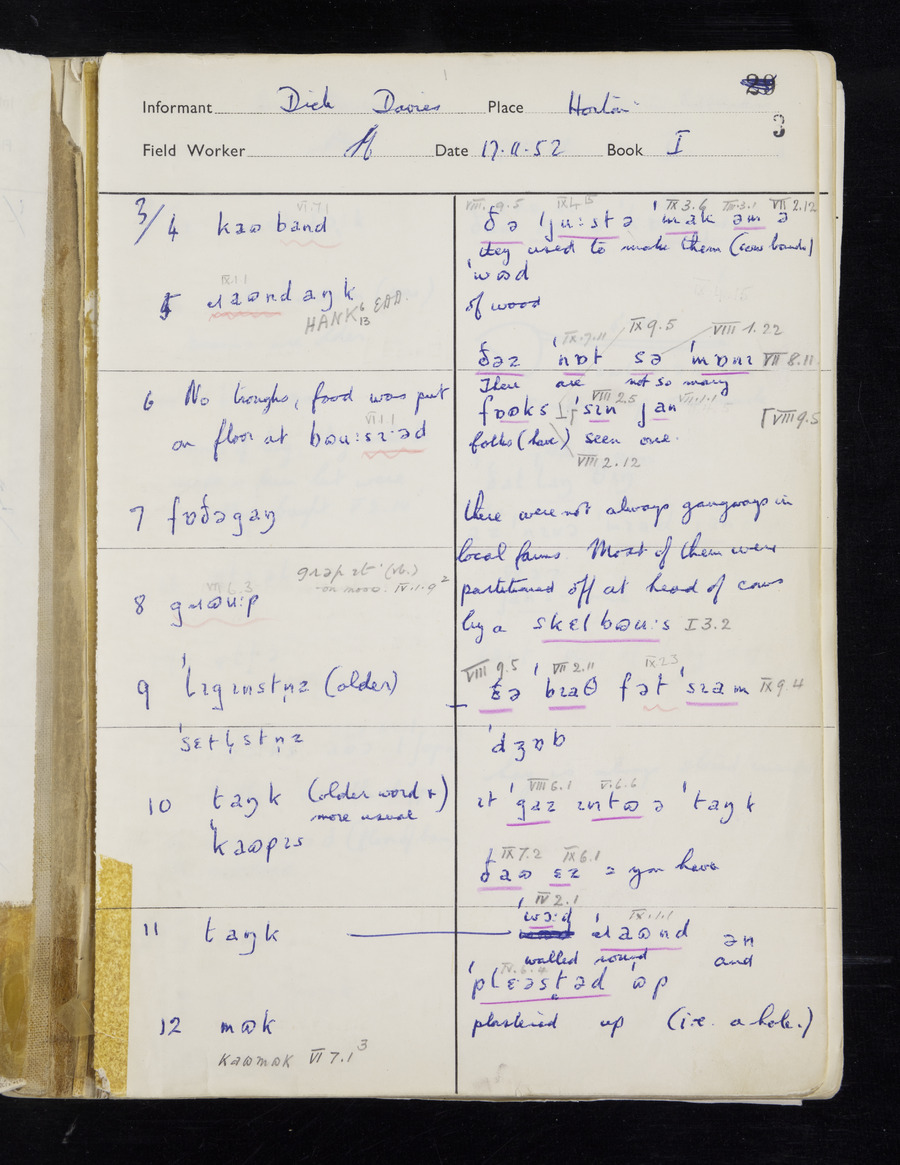 Informant Dick Davies Place Horton
3
Field Worker Date 17.11.52 Book I
3/4 kaɷband
VI.7.1
VIII.9.5 IX.4.15 IX 3.6 VIII.3.1 VII 2.12
ðə ˈju:stə ˈmak əm ə
they used to make them (cow bands)
ˈwɷd
of wood
IX.1.1
5 ɹaɷnd aŋk
HANK 6 13 EDD.
IX.7.11 IX 9.5 VIII 1.22
ðəz ˈnɒt sə ˈmɒnɪ VII 8.11
There are not so many
6 No troughs, food was put
on floor at bɷu:sɪəd
VI.1.1
VIII 2.5 VII.1.1
fɷəks sɪn jan
VIII 9.5
folks (have) seen one.
VIII 2.12
7 fɒðəgaŋ
there were not always gangways in
local farms. Most of them were
partitioned off at head of cows
by a skɛlbɷu:s I 3.2
grəp ɪt (vb.)
on moor. IV.1.9²
8 gɹɷu:p
9 ˈlɪgɪnstn̩z (older)
ˈsɛtl̩stn̩z
VIII 9.5 VII 2.11 IX 2 3
tə ˈbɪaθ fət ˈsɪam IX 9.4
ˈdʒɒb
10 taŋk (older word &)
more usual
ˈkaɷpɪs
VIII 6.1 V.6.6
ɪt ˈgaz ɪntɷ ə ˈtaŋk
IX 7.2 IX 6.1
ðaɷ ɛz = you have
11 taŋk
IV 2.1 IX.1.1
ɹaɷnd ən
walled round and
IV.6.4
ˈplɛəstəd ɷp
plastered up (i.e. a hole.)
12 mɷk
kaɷmɷk VI 7.1³